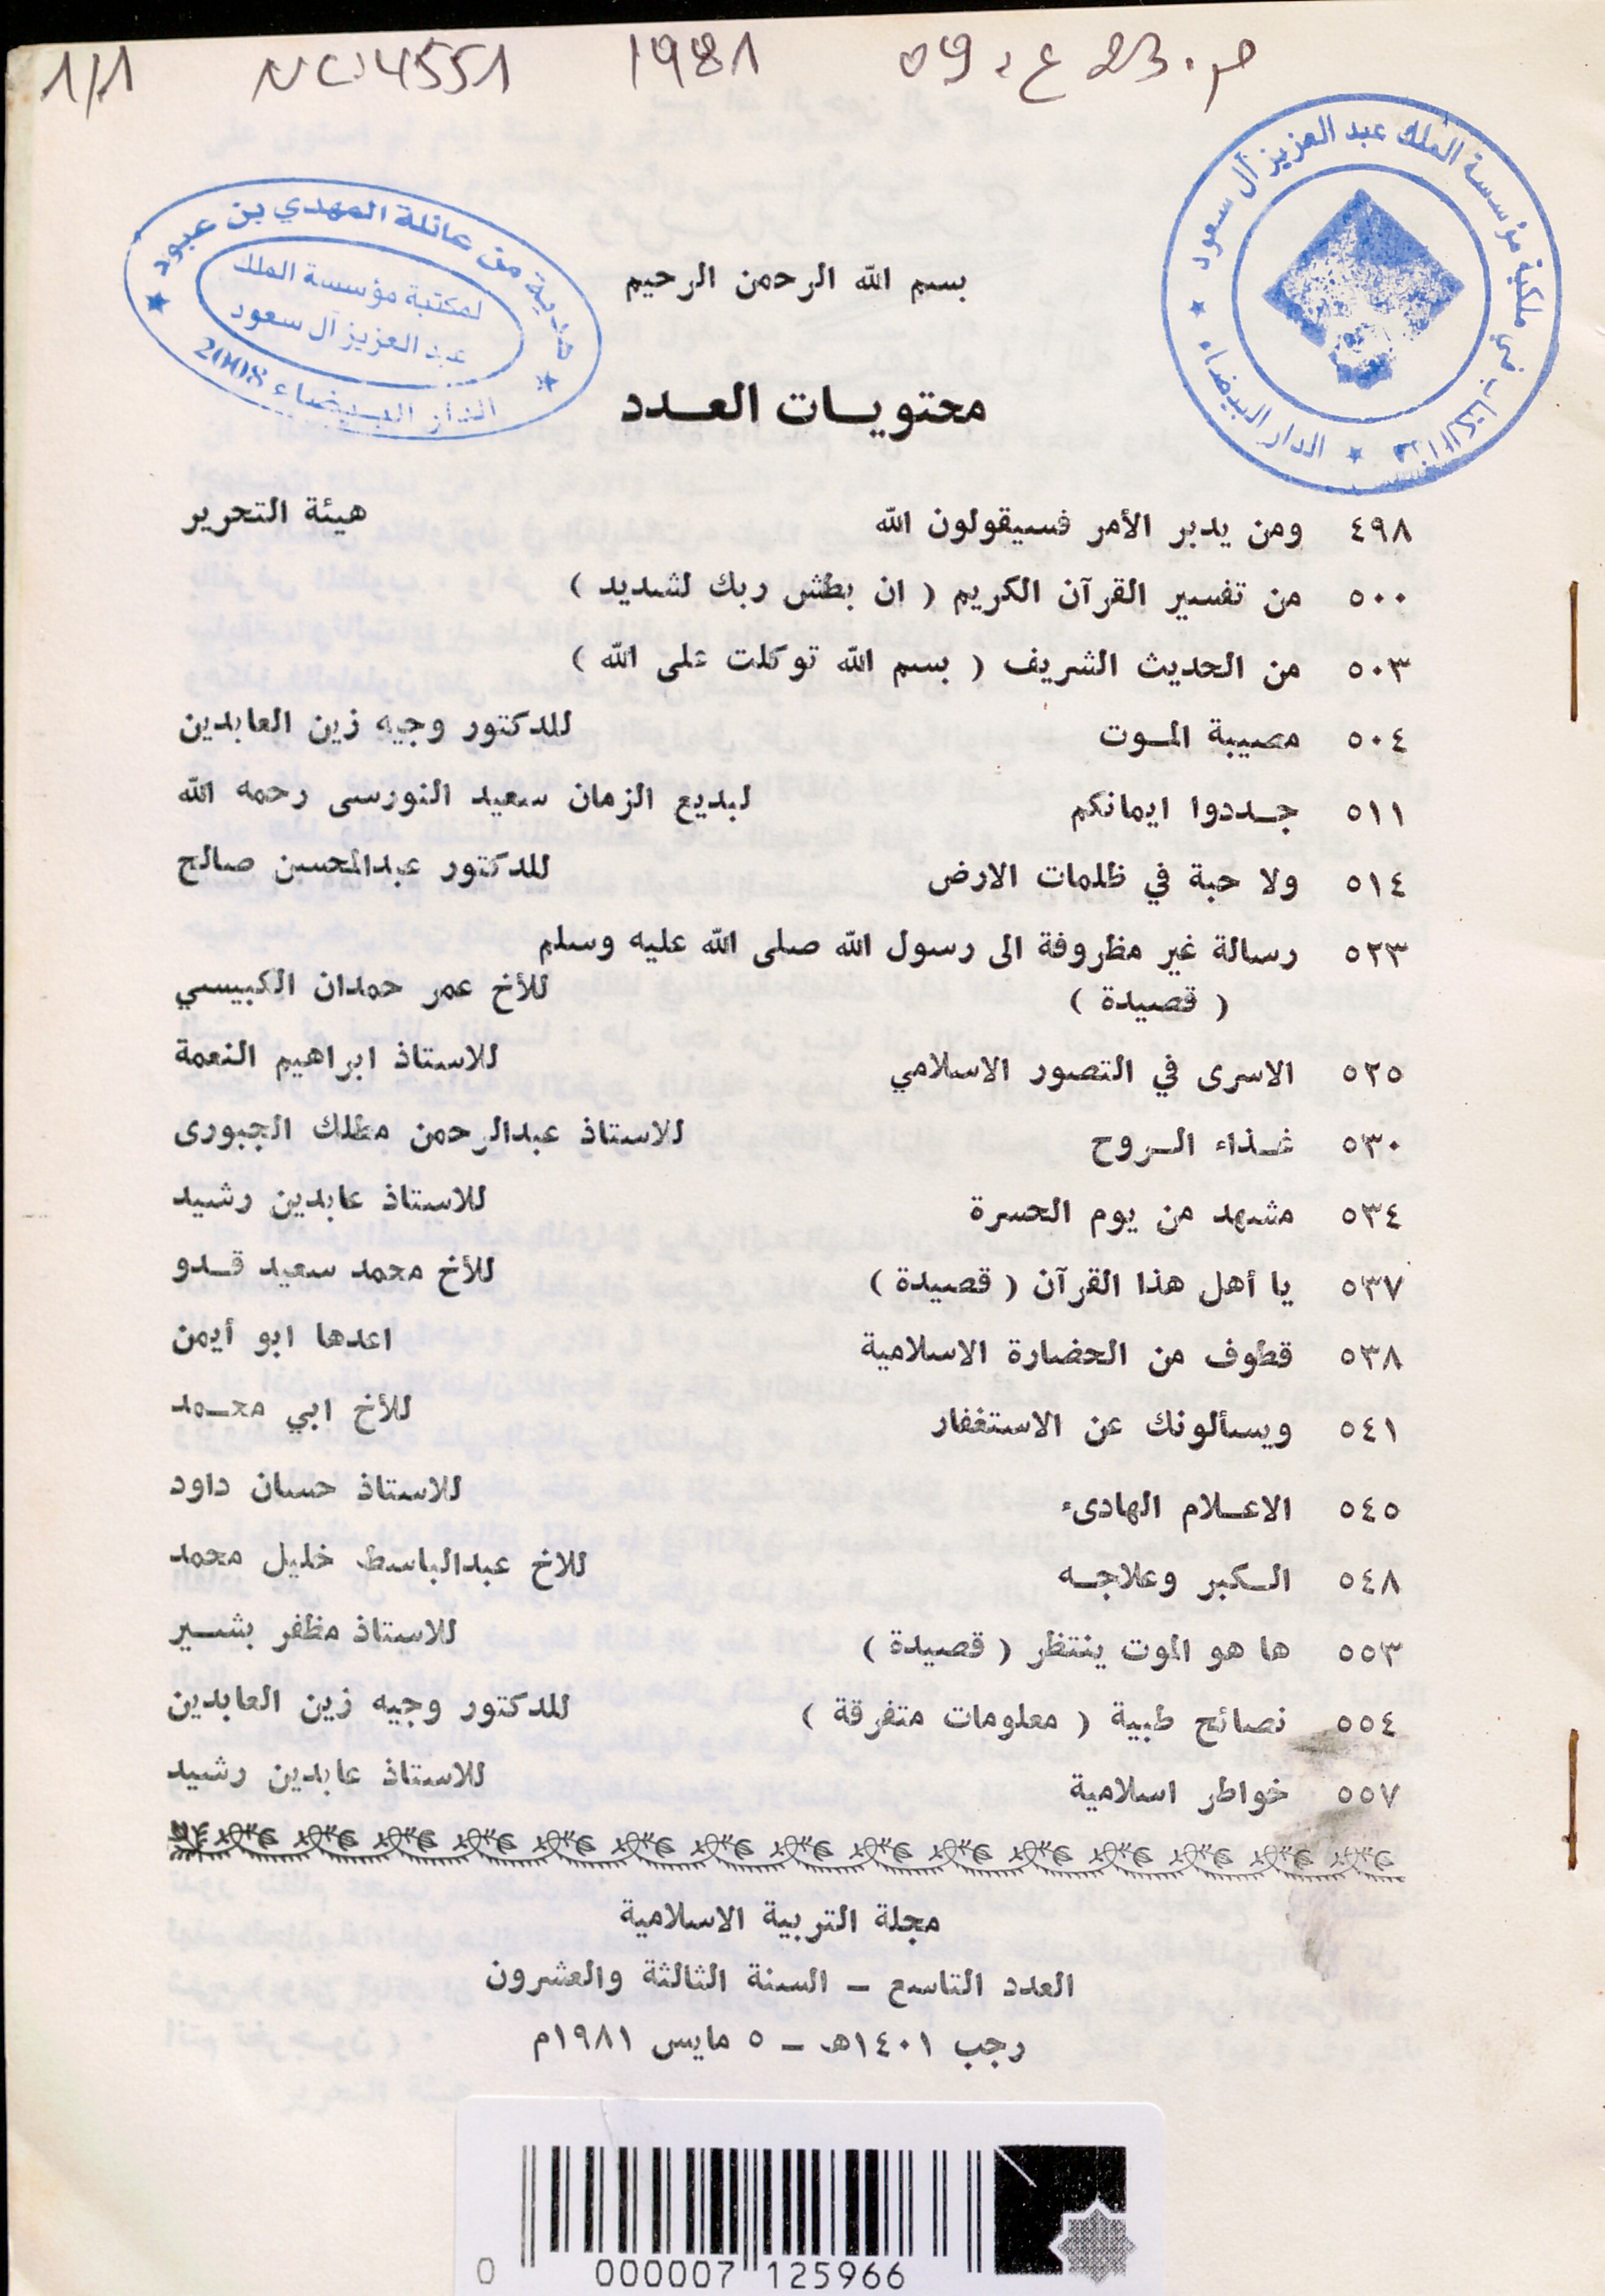 1/1 NC14551 1981 م.23 ع.09
هذا الكتاب في ملكية مؤسسة الملك عبد العزيز آل سعود
★ الدار البيضاء ★
هدية من عائلة المهدي بن عبود
لمكتبة مؤسسة الملك
عبد العزيز آل سعود
★ الدار البيضاء 2008 ★
بسم الله الرحمن الرحيم
محتويـات العـدد
٤٩٨ ومن يدبر الأمر فسيقولون الله هيئة التحرير
٥٠٠ من تفسير القرآن الكريم ( ان بطش ربك لشديد )
٥٠٣ من الحديث الشريف ( بسم الله توكلت على الله )
٥٠٤ مصيبة المـوت للدكتور وجيه زين العابدين
٥١١ جـددوا ايمانكم لبديع الزمان سعيد النورسى رحمه الله
٥١٤ ولا حبة في ظلمات الارض للدكتور عبدالمحسن صالح
٥٢٣ رسالة غير مظروفة الى رسول الله صلى الله عليه وسلم
( قصيدة ) للأخ عمر حمدان الكبيسي
٥٢٥ الاسرى في التصور الاسلامي للاستاذ ابراهيم النعمة
٥٣٠ غـذاء الـروح للاستاذ عبدالرحمن مطلك الجبورى
٥٣٤ مشهد من يوم الحسرة للاستاذ عابدين رشيد
٥٣٧ يا أهل هذا القرآن ( قصيدة ) للأخ محمد سعيد قـدو
٥٣٨ قطوف من الحضارة الاسلامية اعدها ابو أيمن
٥٤١ ويسألونك عن الاستغفار للأخ ابي محـمد
٥٤٥ الاعـلام الهادىء للاستاذ حسان داود
٥٤٨ الـكبر وعلاجـه للاخ عبدالباسط خليل محمد
٥٥٣ ها هو الموت ينتظر ( قصيدة ) للاستاذ مظفر بشـير
٥٥٤ نصائح طبية ( معلومات متفرقة ) للدكتور وجيه زين العابدين
٥٥٧ خواطر اسلامية للاستاذ عابدين رشيد
مجلة التربية الاسلامية
العدد التاسع – السنة الثالثة والعشرون
رجب ١٤٠١هـ – ٥ مايس ١٩٨١م
0 000007 125966